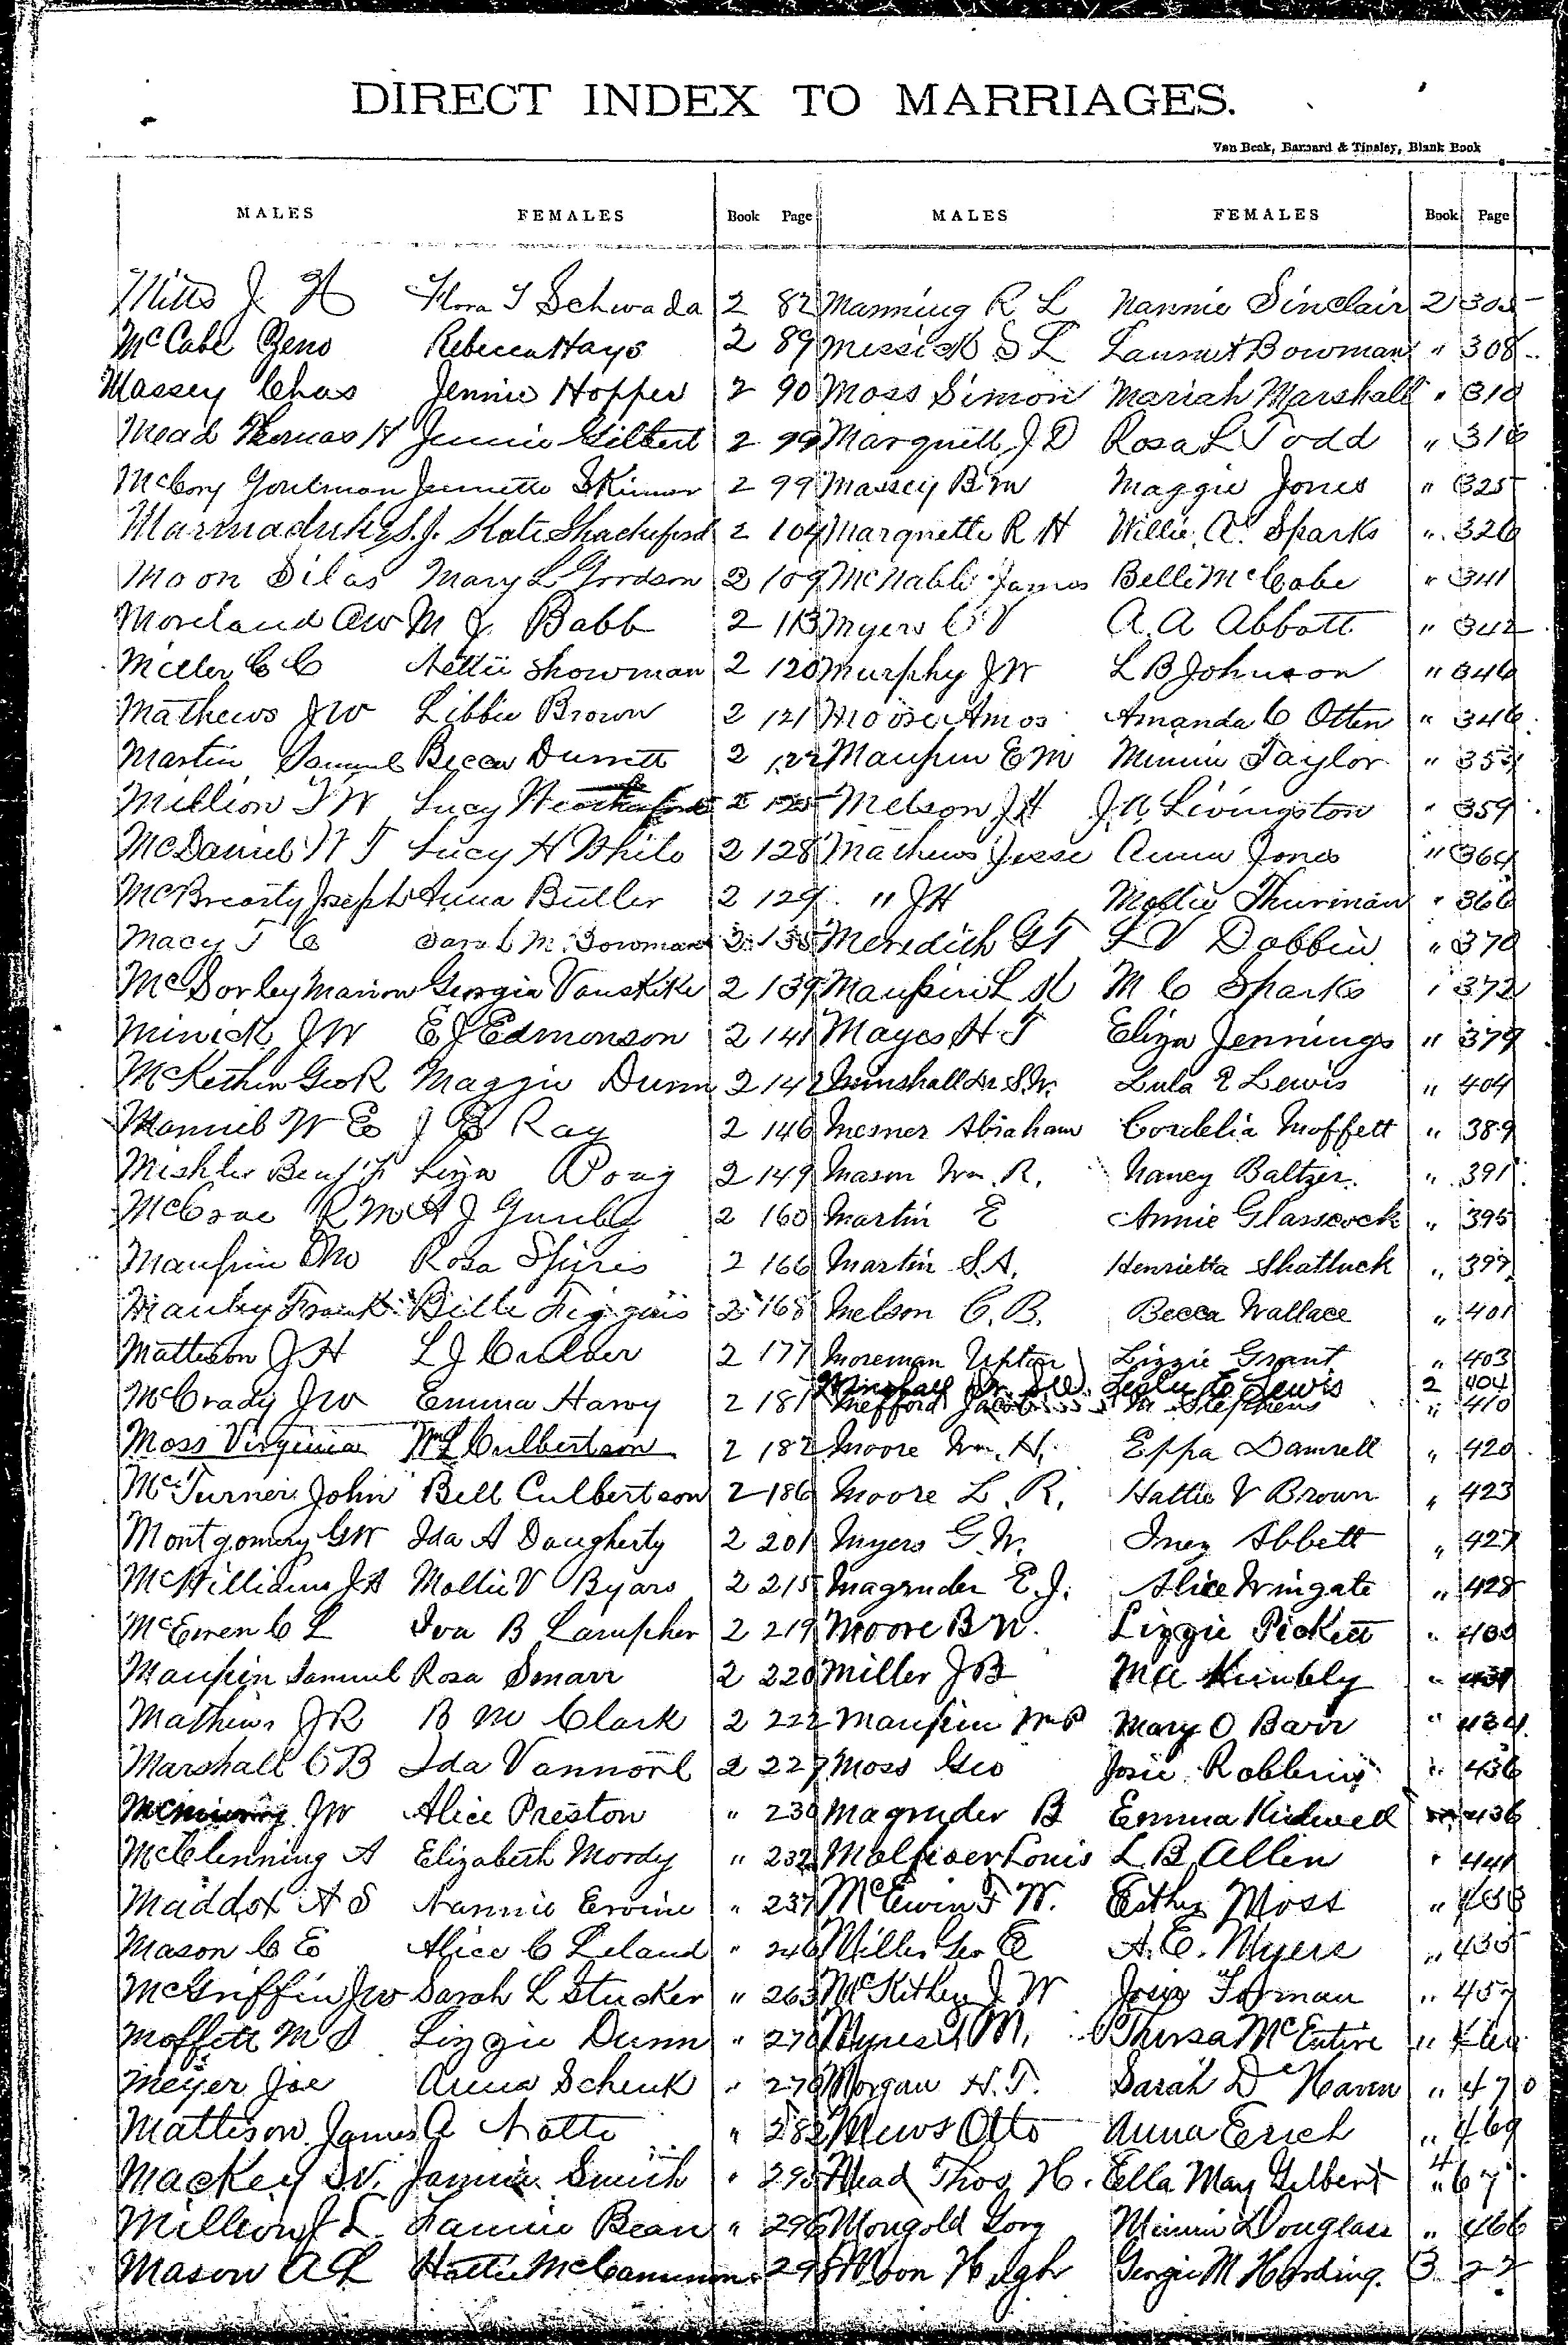 DIRECT INDEX TO MARRIAGES.
Van Beek, Barnard & Tinsley, Blank Book
MALES FEMALES Book Page MALES FEMALES Book Page
Mitts J. H Flora T Schwada 2 82 Manning R L Nannie Sinclair 2 305
McCabe Zeno Rebecca Hays 2 89 Messick S L Bowman " 308
Massey Chas Jennie Hopper 2 90 Moss Simon Mariah Marshall " 310
Mead Thomas H Jennie Gilbert 2 99 J D Rosa L Todd " 316
McCory Jennette Skinner 2 99 Massey B M Maggie Jones " 325
Marmaduke S. J. Kate Shackeford 2 104 Marquette R H Willie A. Sparks " 326
Moon Silas Mary L Goodson 2 109 McNabb James Belle McCabe " 341
Moreland A W M J. Babb 2 113 Myers C V A. A Abbott " 342
Miller C C Nettie Showman 2 120 Murphy J W L B Johnson " 346
Mathews J W Libbie Brown 2 121 Moose Amos Amanda C Otten " 346
Martin Samuel Becca Durrett 2 122 Maupin E M Minnie Taylor "
Million T W Lucy Weatherford 2 125 Melson J H J. A. Livingston " 359
McDaniel W T Lucy H White 2 128 Mathews Jesse Anna Jones " 364
McBrearty Joseph Anna Butler 2 129 " J H Mollie Thurman " 366
Macy T C Sarah M. Bowman 2 135 Meredith G T L V Dobbin " 370
McSorley Marion Georgia Vanskike 2 139 Maupin L M C Sparks " 372
Minick J W E J Edmonson 2 141 Mayes H T Eliza Jennings " 379
McKethen Geo R Maggie Dunn 2 142 Minshall Dr. S. W. Lula E Lewis " 404
W E J E Ray 2 146 Mesner Abraham Cordelia Moffett " 389
Mishler Benj F Liza Poag 2 149 Mason Wm. R. Nancy Baltzer " 391
McCrae R M A J Gunby 2 160 Martin E Annie Glasscock " 395
Maupin Rosa Spiris 2 166 Martin S. A. Henrietta Shattuck " 399
Manley Frank Bille Figgins 2 168 Melson C. B. Becca Wallace " 401
Mattison J H L J Culver 2 177 Moreman Upton Lizzie Grant " 403
Minshall Dr. S W. Lewis 2 404
McCrady J W Emma Harvy 2 181 Mefford Jacob M Stephens " 410
Moss Virginia Wm L Culbertson 2 182 Moore Wm. H. Eppa Damrell " 420
McTurner John Bell Culbertson 2 186 Moore L. R. Hattie V Brown " 423
Montgomery G W Ida A Daugherty 2 201 Myers G. W. Inez Abbett " 427
McWilliams J A Mollie V Byars 2 215 Magruder E. J. Alice Wingate " 428
McEwen C L Iva B Lampher 2 219 Moore B W. Lizzie Pickett "
Maupin Samuel Rosa Smarr 2 220 Miller J B M A Kimbly "
Mathews J R B M Clark 2 222 Maupin Wm P Mary O Barr " 434
Marshall C B Ida Vannorl 2 227 Moss Geo Josie Robbins " 436
J W Alice Preston " 230 Magruder B Emma Kidwell 436
McClenning A Elizabeth Moody " 232 Louis L. B. Allen " 441
Maddox A S Nannie Ervine " 237 McEwin F W. Esther Moss "
Mason C E Alice C Leland " 246 Miller Geo E A. E. Myers " 435
McGriffin J W Sarah L Stucker " 263 McKithen J. W Josie Forman " 457
Moffett M S Lizzie Dunn " 270 M. Thursa McEntire "
Meyer Joe Anna Schenk " 276 Morgan H. T. Sarah D Haven " 470
Mattison James A Natte " 282 Mews Otto Anna Erich " 469
Mackey S. V. Jannie Smith " 295 Mead Thos H. Ella May Gilbert 4 " 67
Million J L. Fannie Bean " 296 Mongold Gorg Minnie Douglass " 466
Mason A L Hattie McCammon " 298 Moon Hugh Georgie M Harding. 3 22